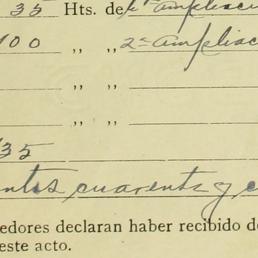 35 Hts. de 1ª ampliaci
100 " " 2ª ampliac
" "
" "
35
ntos cuarenta y c
edores declaran haber recibido de
este acto.